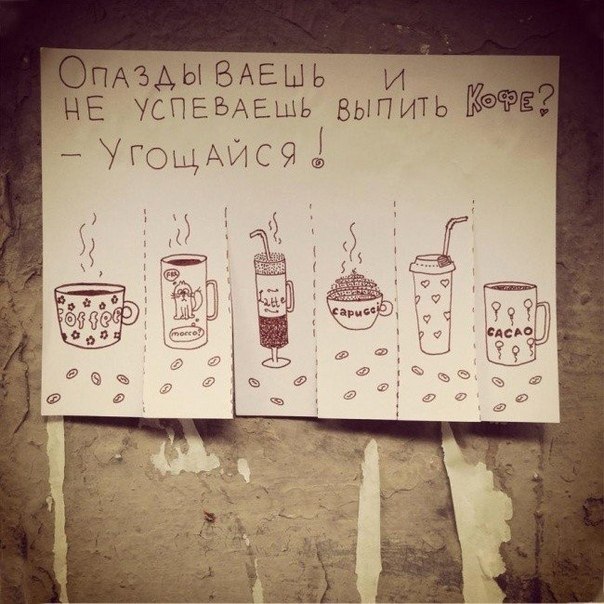 Опаздываешь и
не успеваешь выпить кофе?
– Угощайся!
coffee
мосco?
Latte
Capucci
CACAO